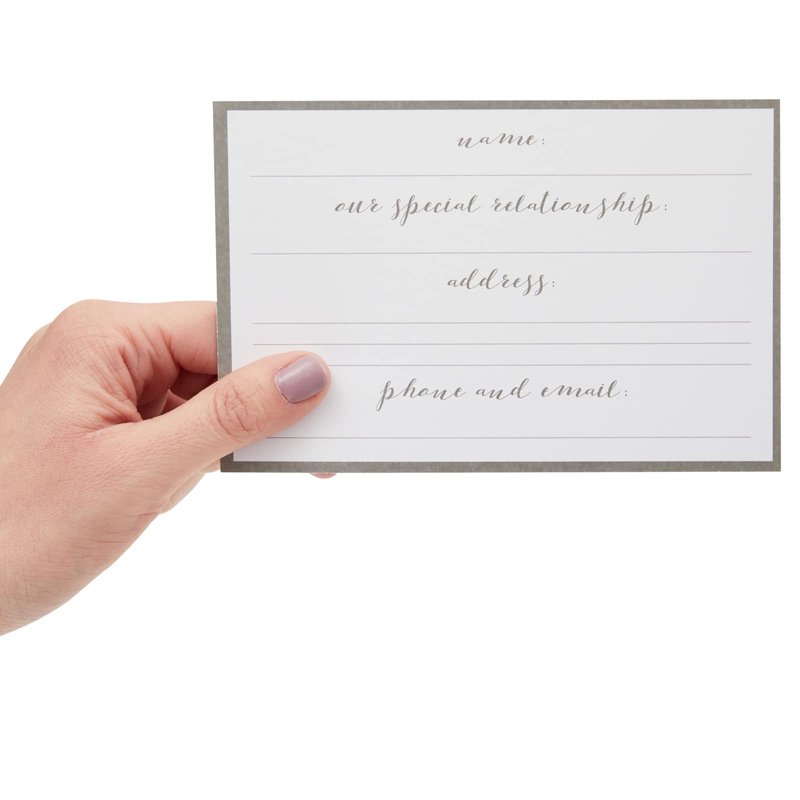 name:
our special relationship:
address:
phone and email: